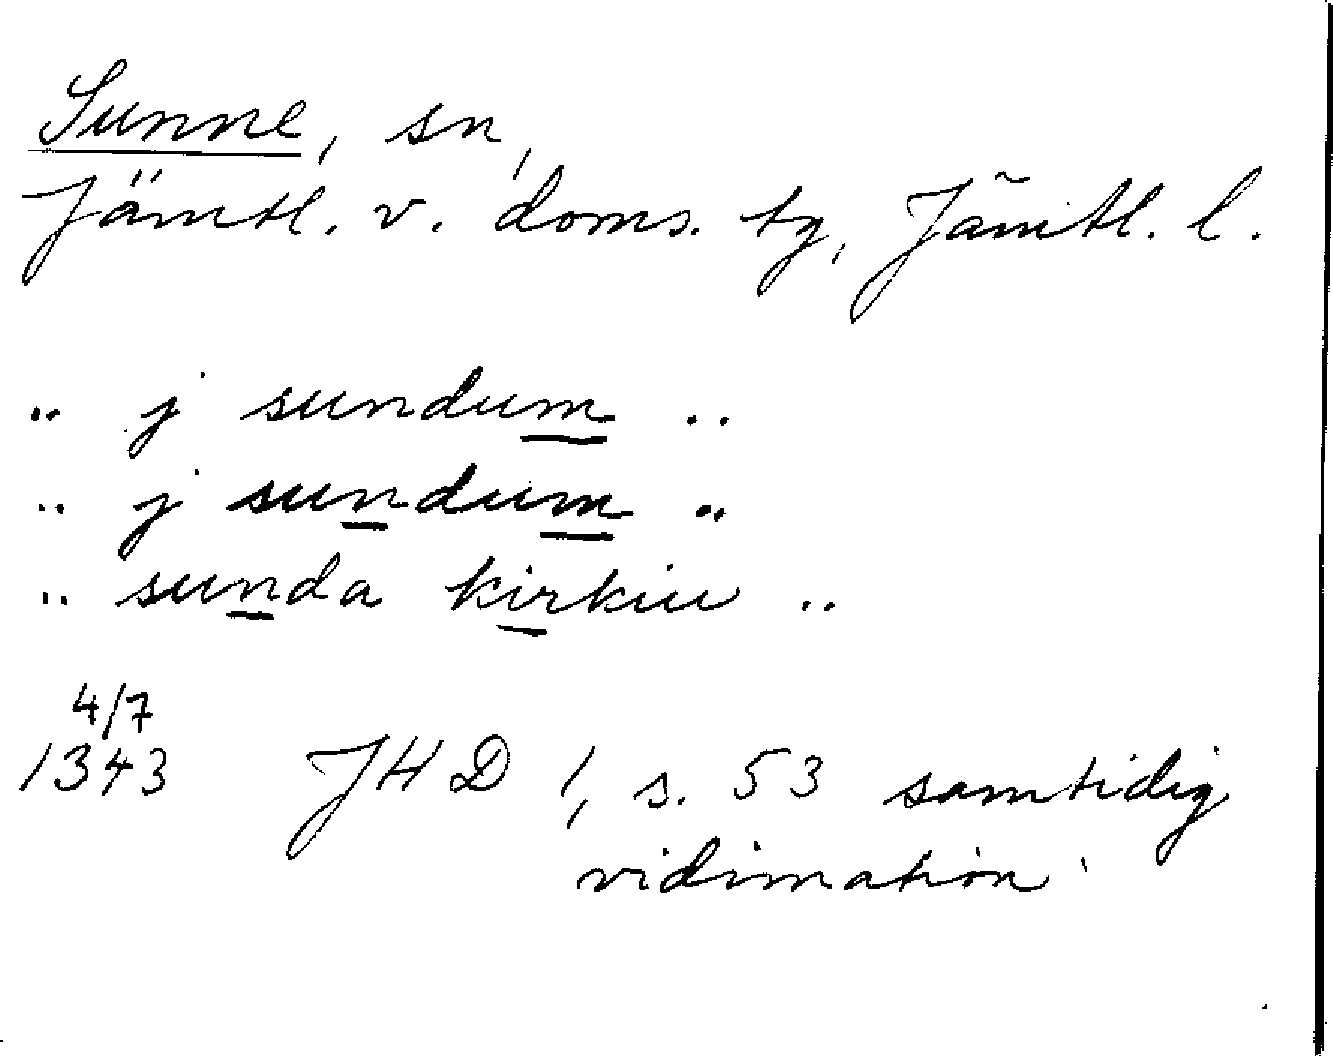 Sunne, sn,
Jämtl. v. doms. tg, Jämtl. l.
.. j sundum ..
.. j sundum ..
.. sunda kirkiu ..
4/7
1343 JHD 1, s. 53 samtidig
vidimation